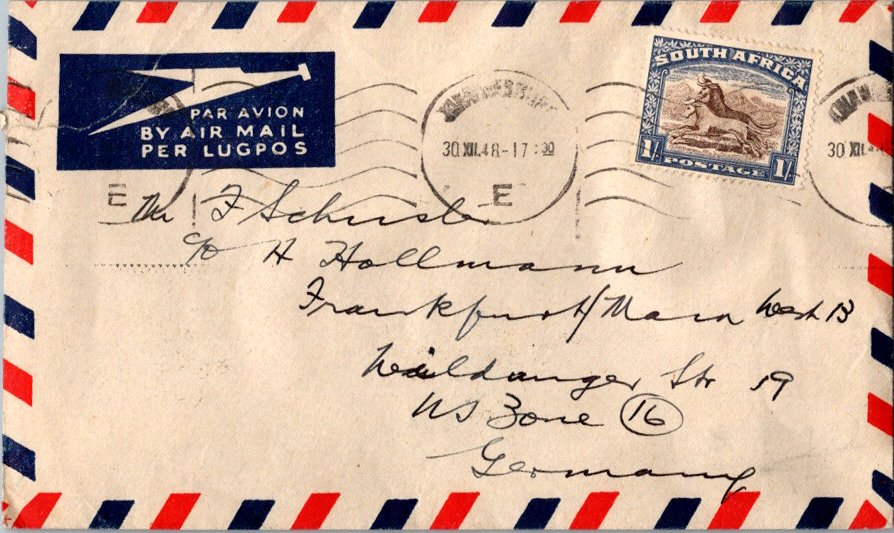 PAR AVION
BY AIR MAIL
PER LUGPOS
SOUTH AFRICA
1/- POSTAGE 1/-
30 XII 48-17 30
E
E
30 XII
Mr F Schuster
c/o H Hollmann
Frankfurt/Main West 13
Wildunger Str 19
US Zone 16
Germany